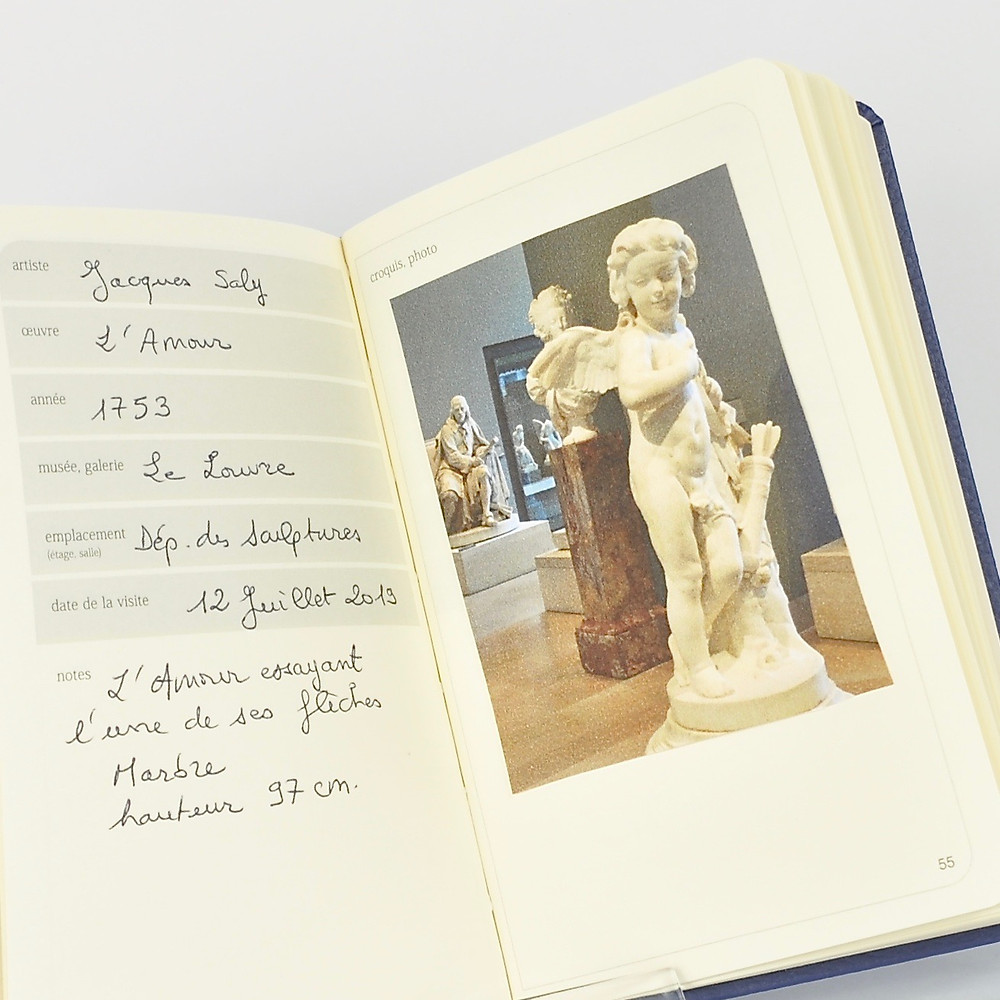 artiste Jacques Saly
œuvre L'Amour
année 1753
musée, galerie Le Louvre
emplacement Dép. des sculptures
(étage, salle)
date de la visite 12 Juillet 2019
notes L'Amour essayant
l'une de ses flèches
Marbre
hauteur 97 cm.
croquis, photo
55